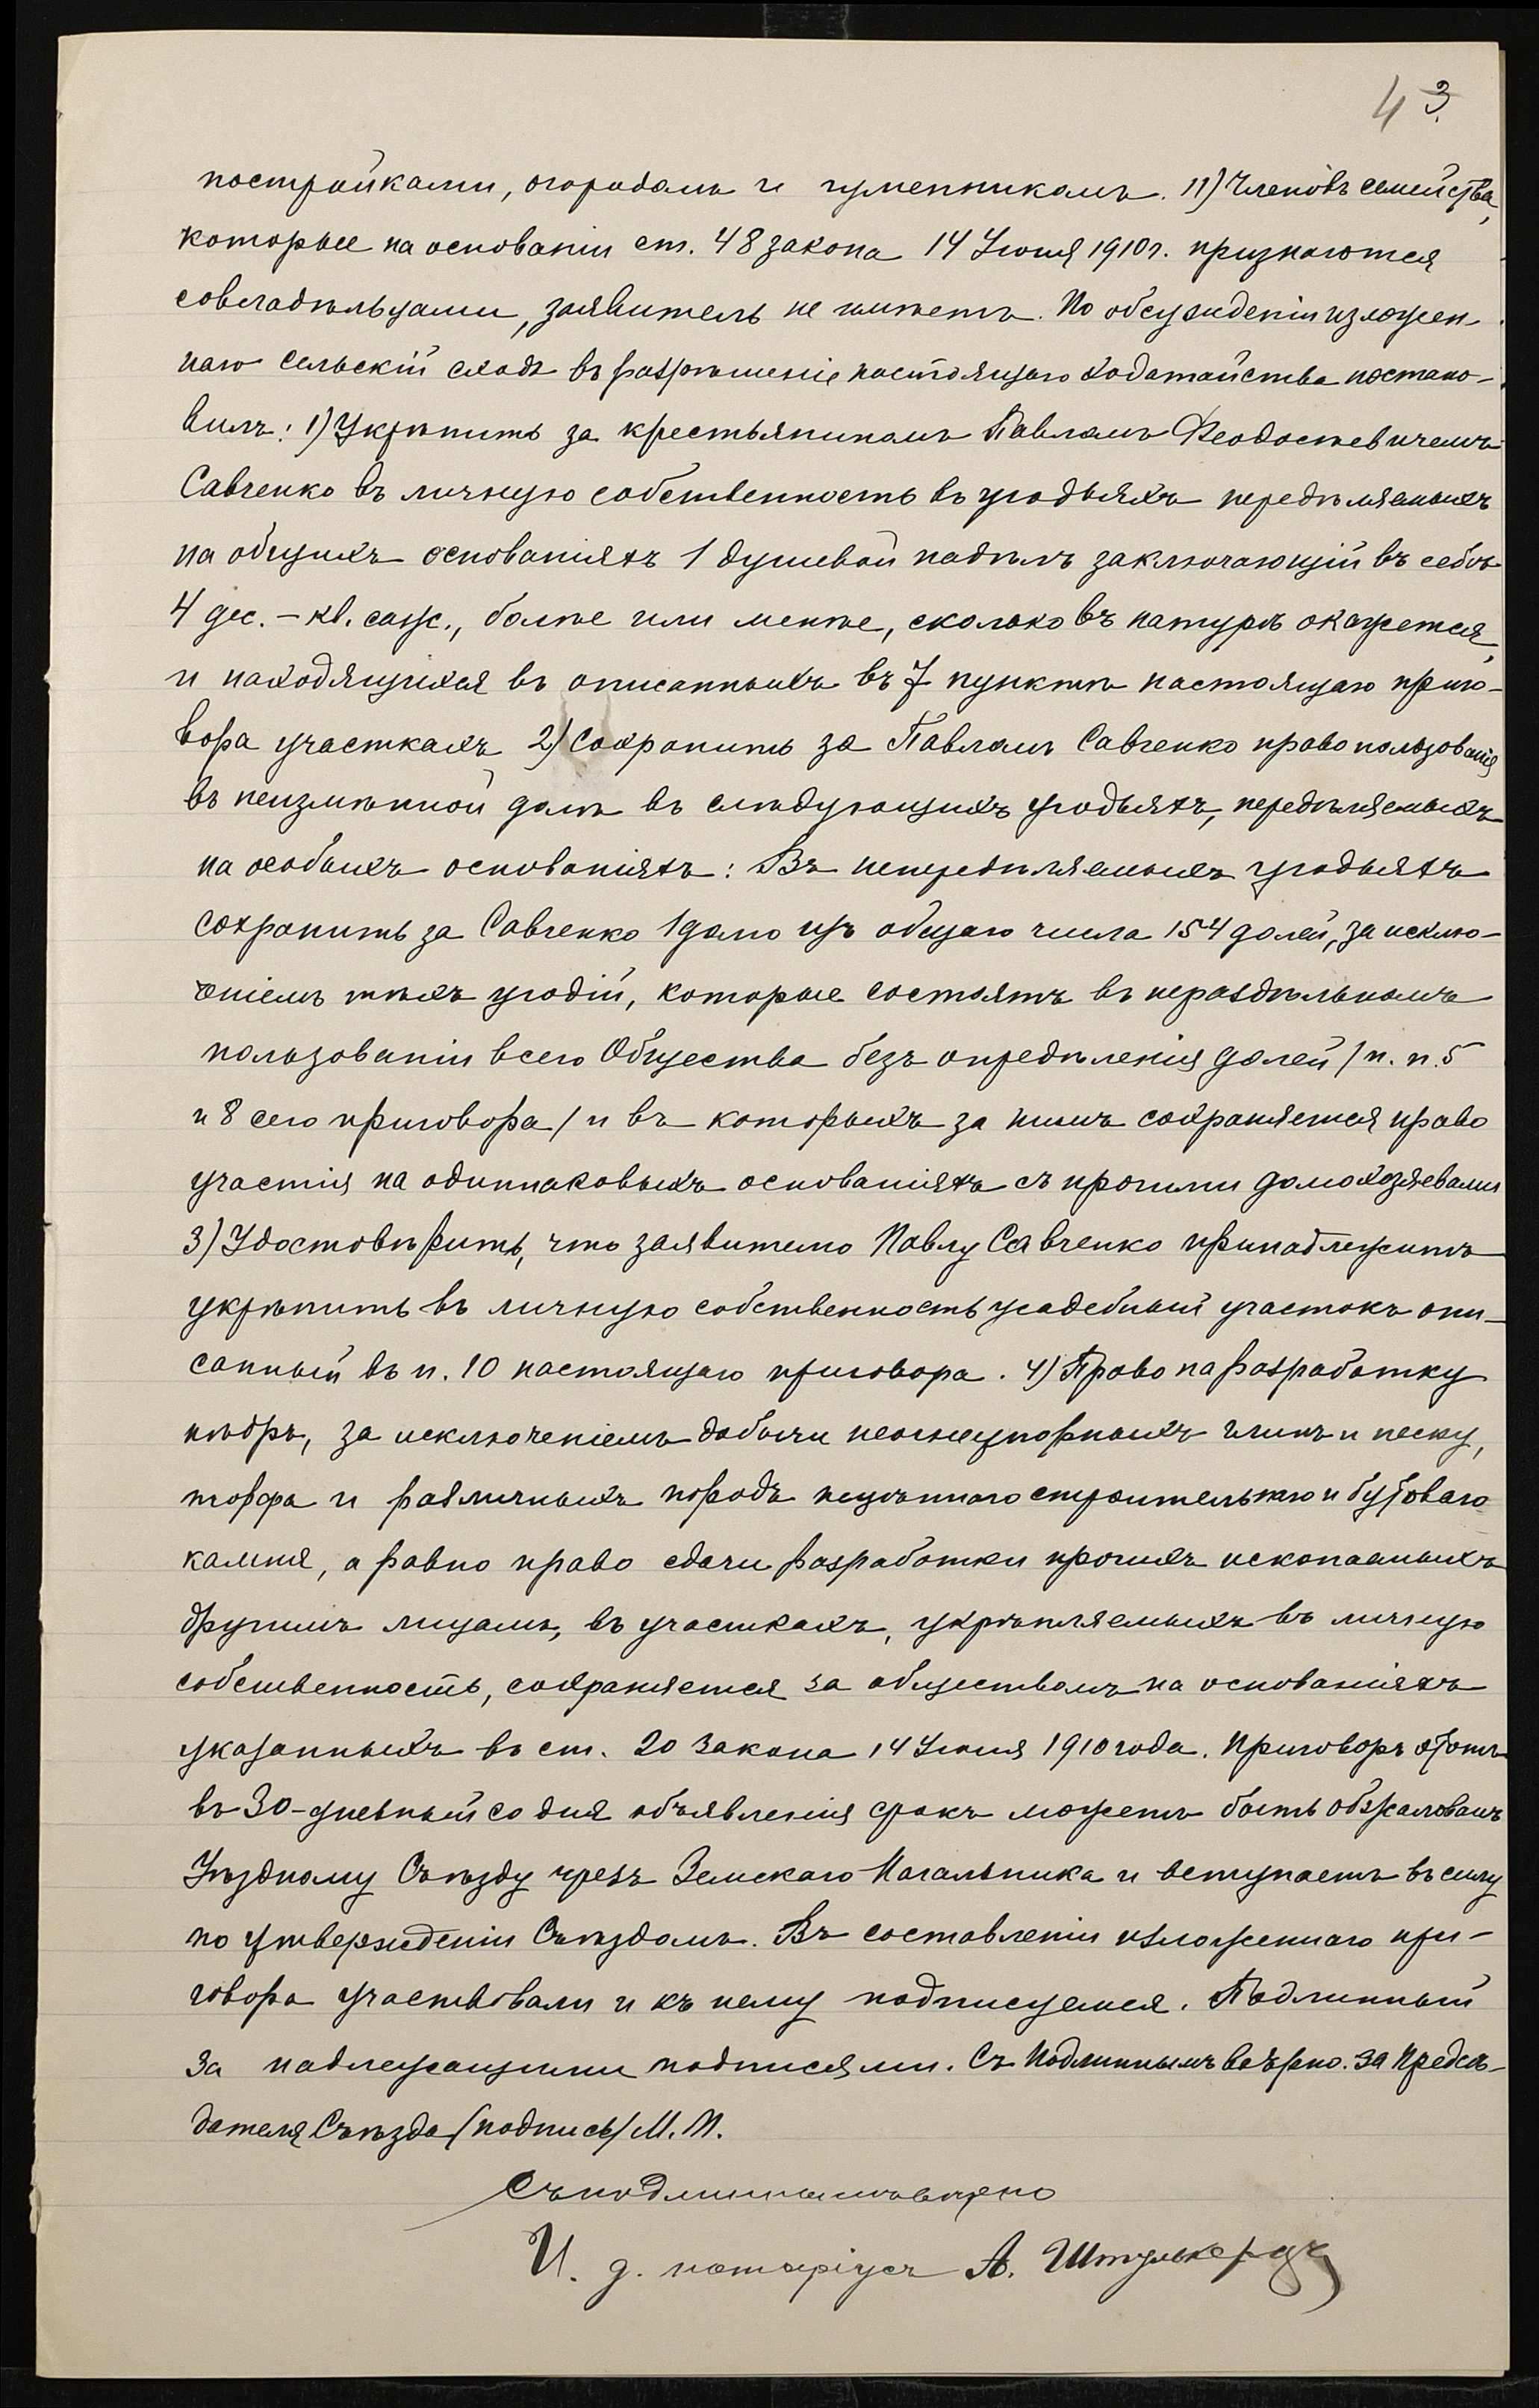 43.
постройками, огородомъ и гуменникомъ. 11) Членовъ семейства,
которые на основаніи ст. 48 закона 14 Іюня 1910 г. признаются
совладѣльцами, заявитель не имѣетъ. По обсужденіи изложен-
наго сельскій сходъ въ разрѣшеніе настоящаго ходатайства постано-
вилъ: 1) Укрѣпить за крестьяниномъ Павломъ Феодосіевичемъ
Савченко въ личную собственность въ угодьяхъ передѣляемыхъ
на общихъ основаніяхъ 1 душевой надѣлъ заключающій въ себѣ
4 дес. – кв. саж., болѣе или менѣе, сколько въ натурѣ окажется,
и находящихся въ описанныхъ въ 7 пунктѣ настоящаго приго-
вора участкахъ 2) Сохранить за Павломъ Савченко право пользованія
въ неизмѣнной долѣ въ слѣдующихъ угодьяхъ, передѣляемыхъ
на особыхъ основаніяхъ: Въ непередѣляемыхъ угодьяхъ
сохранить за Савченко 1 долю изъ общаго числа 154 долей, за исклю-
ченіемъ тѣхъ угодій, которые состоятъ въ нераздѣльномъ
пользованіи всего Общества безъ опредѣленія долей /п. п. 5
и 8 сего приговора/ и въ которыхъ за нимъ сохраняется право
участія на одинаковыхъ основаніяхъ съ прочими домохозяевами
3) Удостовѣрить, что заявителю Павлу Савченко принадлежитъ
укрѣпить въ личную собственность усадебный участокъ опи-
санный въ п. 10 настоящаго приговора. 4) Право на разработку
нѣдръ, за исключеніемъ добычи неогнеупорныхъ глинъ и песку,
торфа и различныхъ породъ нецѣннаго строительнаго и бутоваго
камня, а равно право сдачи разработки прочихъ ископаемыхъ
другимъ лицамъ, въ участкахъ, укрѣпляемыхъ въ личную
собственность, сохраняется за обществомъ на основаніяхъ
указанныхъ въ ст. 20 закона 14 Іюня 1910 года. Приговоръ этотъ
въ 30-дневный со дня объявленія срокъ можетъ быть обжалованъ
Уѣздному Съѣзду чрезъ Земскаго Начальника и вступаетъ въ силу
по утвержденіи Съѣздомъ. Въ составленіи изложеннаго при-
говора участвовали и къ нему подписуемся. Подлинный
за надлежащими подписями. Съ Подлиннымъ вѣрно. За Предсѣ-
дателя Съѣзда /подпись/ М. П.
Съ подлиннымъ вѣрно
И. д. нотаріуса А.